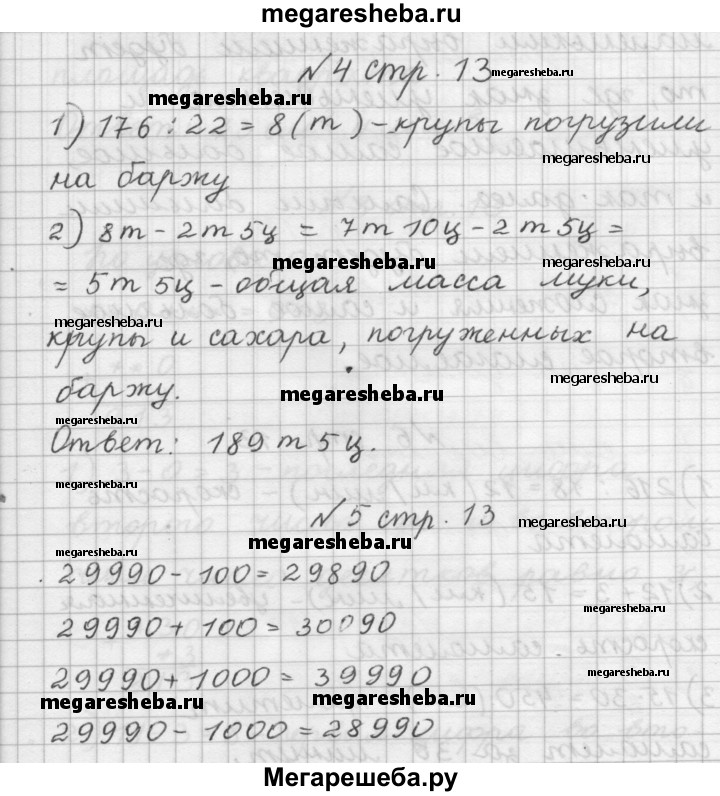 megaresheba.ru
№4 стр. 13 megaresheba.ru
megaresheba.ru
1) 176 : 22 = 8 (т) - крупы погрузили
megaresheba.ru
на баржу
2) 8т - 2т 5ц = 7т 10ц - 2т 5ц =
megaresheba.ru
= 5т 5ц - общая масса муки,
megaresheba.ru
крупы и сахара, погруженных на
megaresheba.ru
баржу. megaresheba.ru
megaresheba.ru
Ответ: 189 т 5 ц.
megaresheba.ru
№5 стр. 13 megaresheba.ru
megaresheba.ru megaresheba.ru
29990 - 100 = 29890
megaresheba.ru
29990 + 100 = 30090
29990 + 1000 = 39990 megaresheba.ru
megaresheba.ru megaresheba.ru
29990 - 1000 = 28990
Мегарешеба.ру